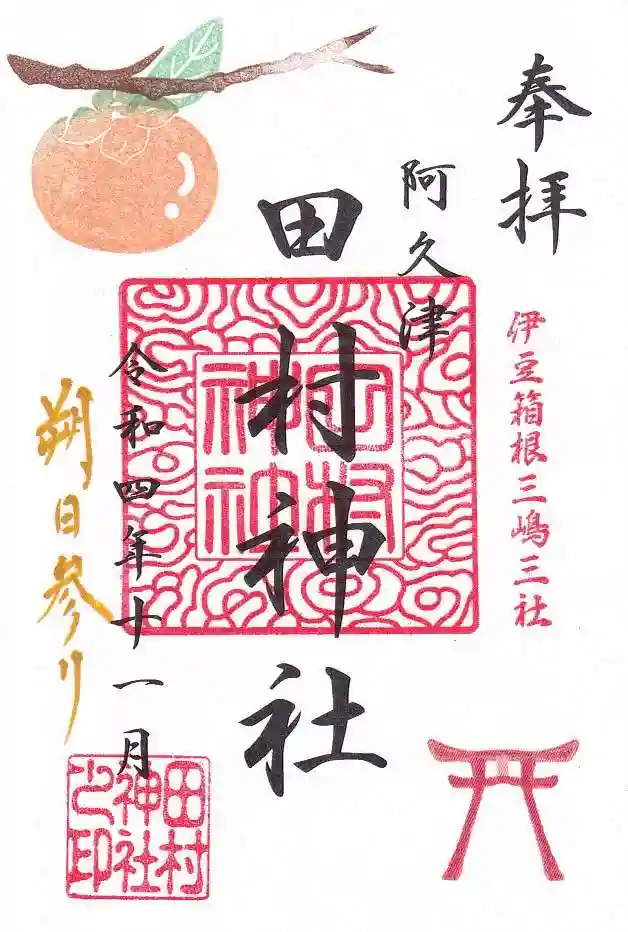 奉拝
伊豆箱根三嶋三社
阿久津
田村神社
田村神社
令和四年十一月
朔日参り
田村
神社
之印